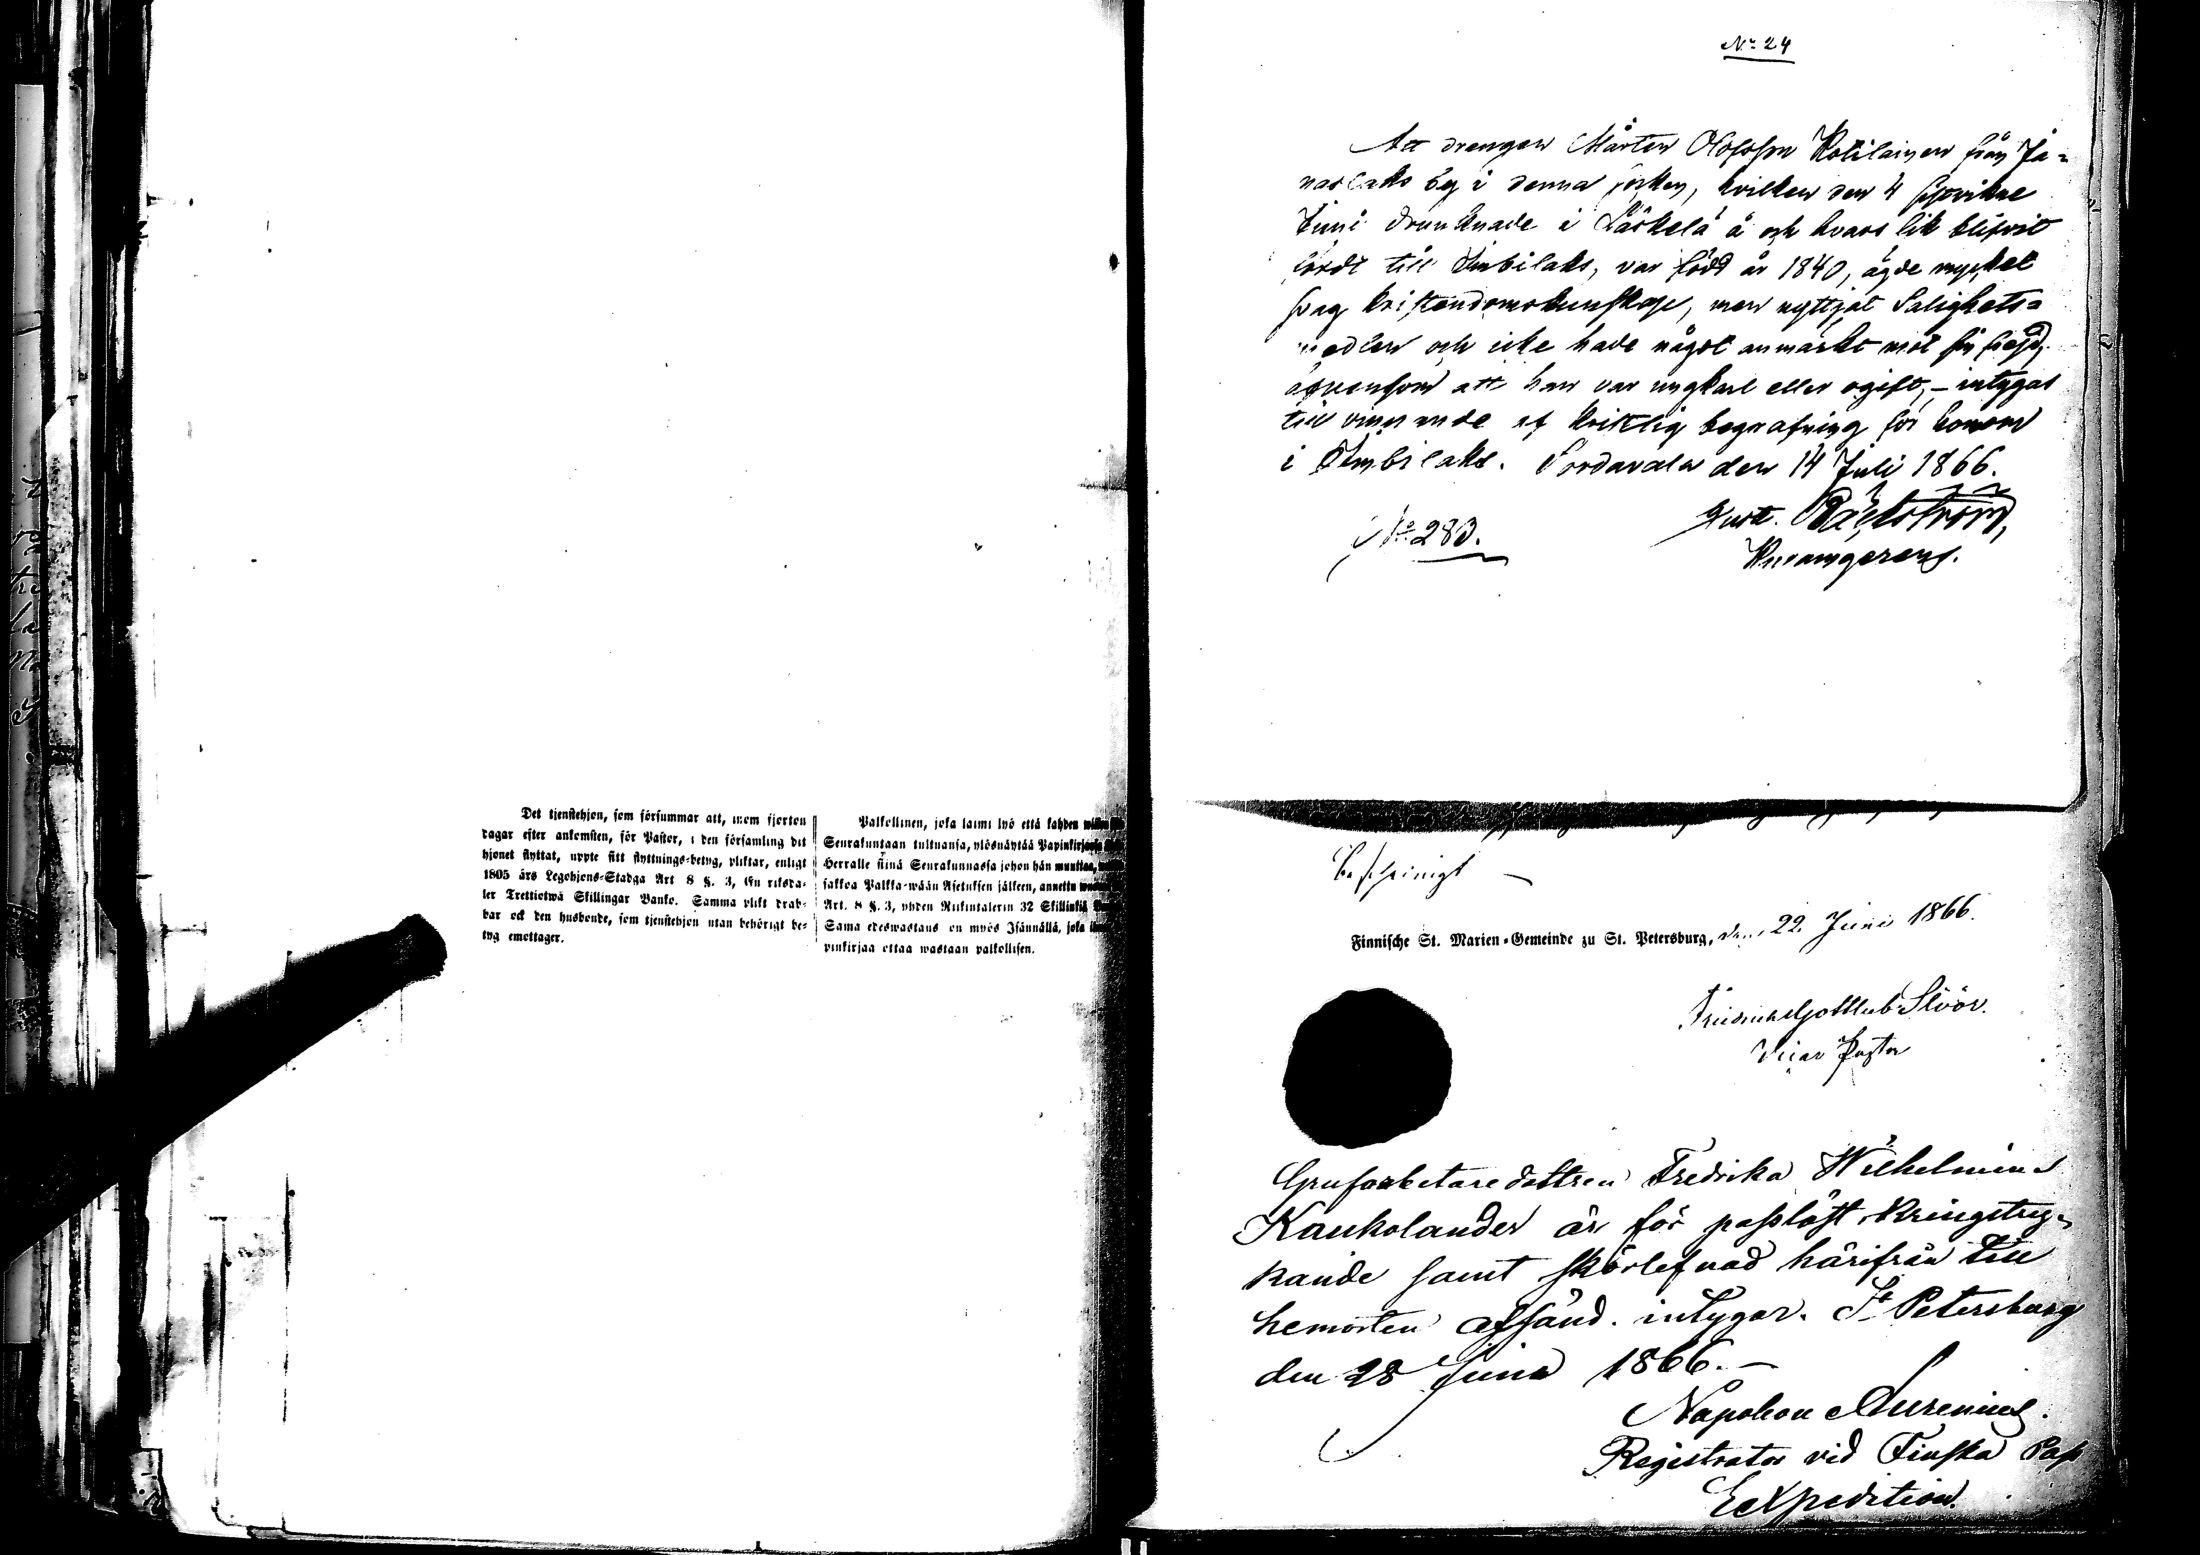 Det tjenstehjon, som försummar att, inom fjorton
dagar efter ankomsten, för Pastor, i den församling dit
hjonet flyttat, uppte sitt flyttnings-betyg, pliktar, enligt
1805 års Legohjons-Stadga Art 8 §. 3, En riksda-
ler Trettiotwå Skillingar Banko. Samma plikt drab-
bar ock den husbonde, som tjenstehjon utan behörigt be-
tyg emottager.
Palkollinen, joka laimi lyö että kahden
Seurakuntaan tultuansa, ylösnäytää Papinkirjansa
Herralle siinä Seurakunnassa johon hän muuttaa,
sakkoa Palkka-wään Asetuksen jälkeen, annettu
Art. 8 §. 3, yhden Riikintalerin 32 Skillinkiä
Sama edeswastaus on myös Isännällä, joka
pinkirjaa ottaa wastaan palkollisen.
No 24
Att drengen Mårten Olofsson Kotilainen från Jä-
naslaks by i denna socken, hvilken den 4 sistvikne
Juni drunknade i Läskelä å och hvars lik blifvit
fördt till Imbilaks, var född år 1840, ägde mycket
svag kristendomskunskap, men nyttjat Salighets-
medlen och icke hade något anmärkt mot sin frejd,
äfvensom att han var ungkarl eller ogift, – intygas
till vinnande af kristlig begrafning för honom
i Imbilaks. Sordavala den 14 Juli 1866.
No 283.
Gust.
Bescheinigt –
Finnische St. Marien-Gemeinde zu St. Petersburg, den 22. Juni 1866.
Friedrich Gottlieb Slöör.
Vicar Pastor
Grufarbetaredottren Fredrika Wilhelmina
Kaukolander är för passlöst kringstry-
kande samt skörlefnad härifrån till
hemorten afsänd. intygar. St Petersburg
den 28 Juni 1866. –
Napoleon
Registrator vid Finska Pass
Expedition.